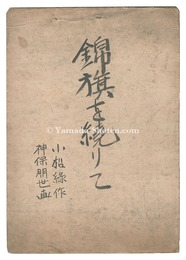 錦旗を繞りて
小松緑作
神保朋世画
© Yamada Shoten.com